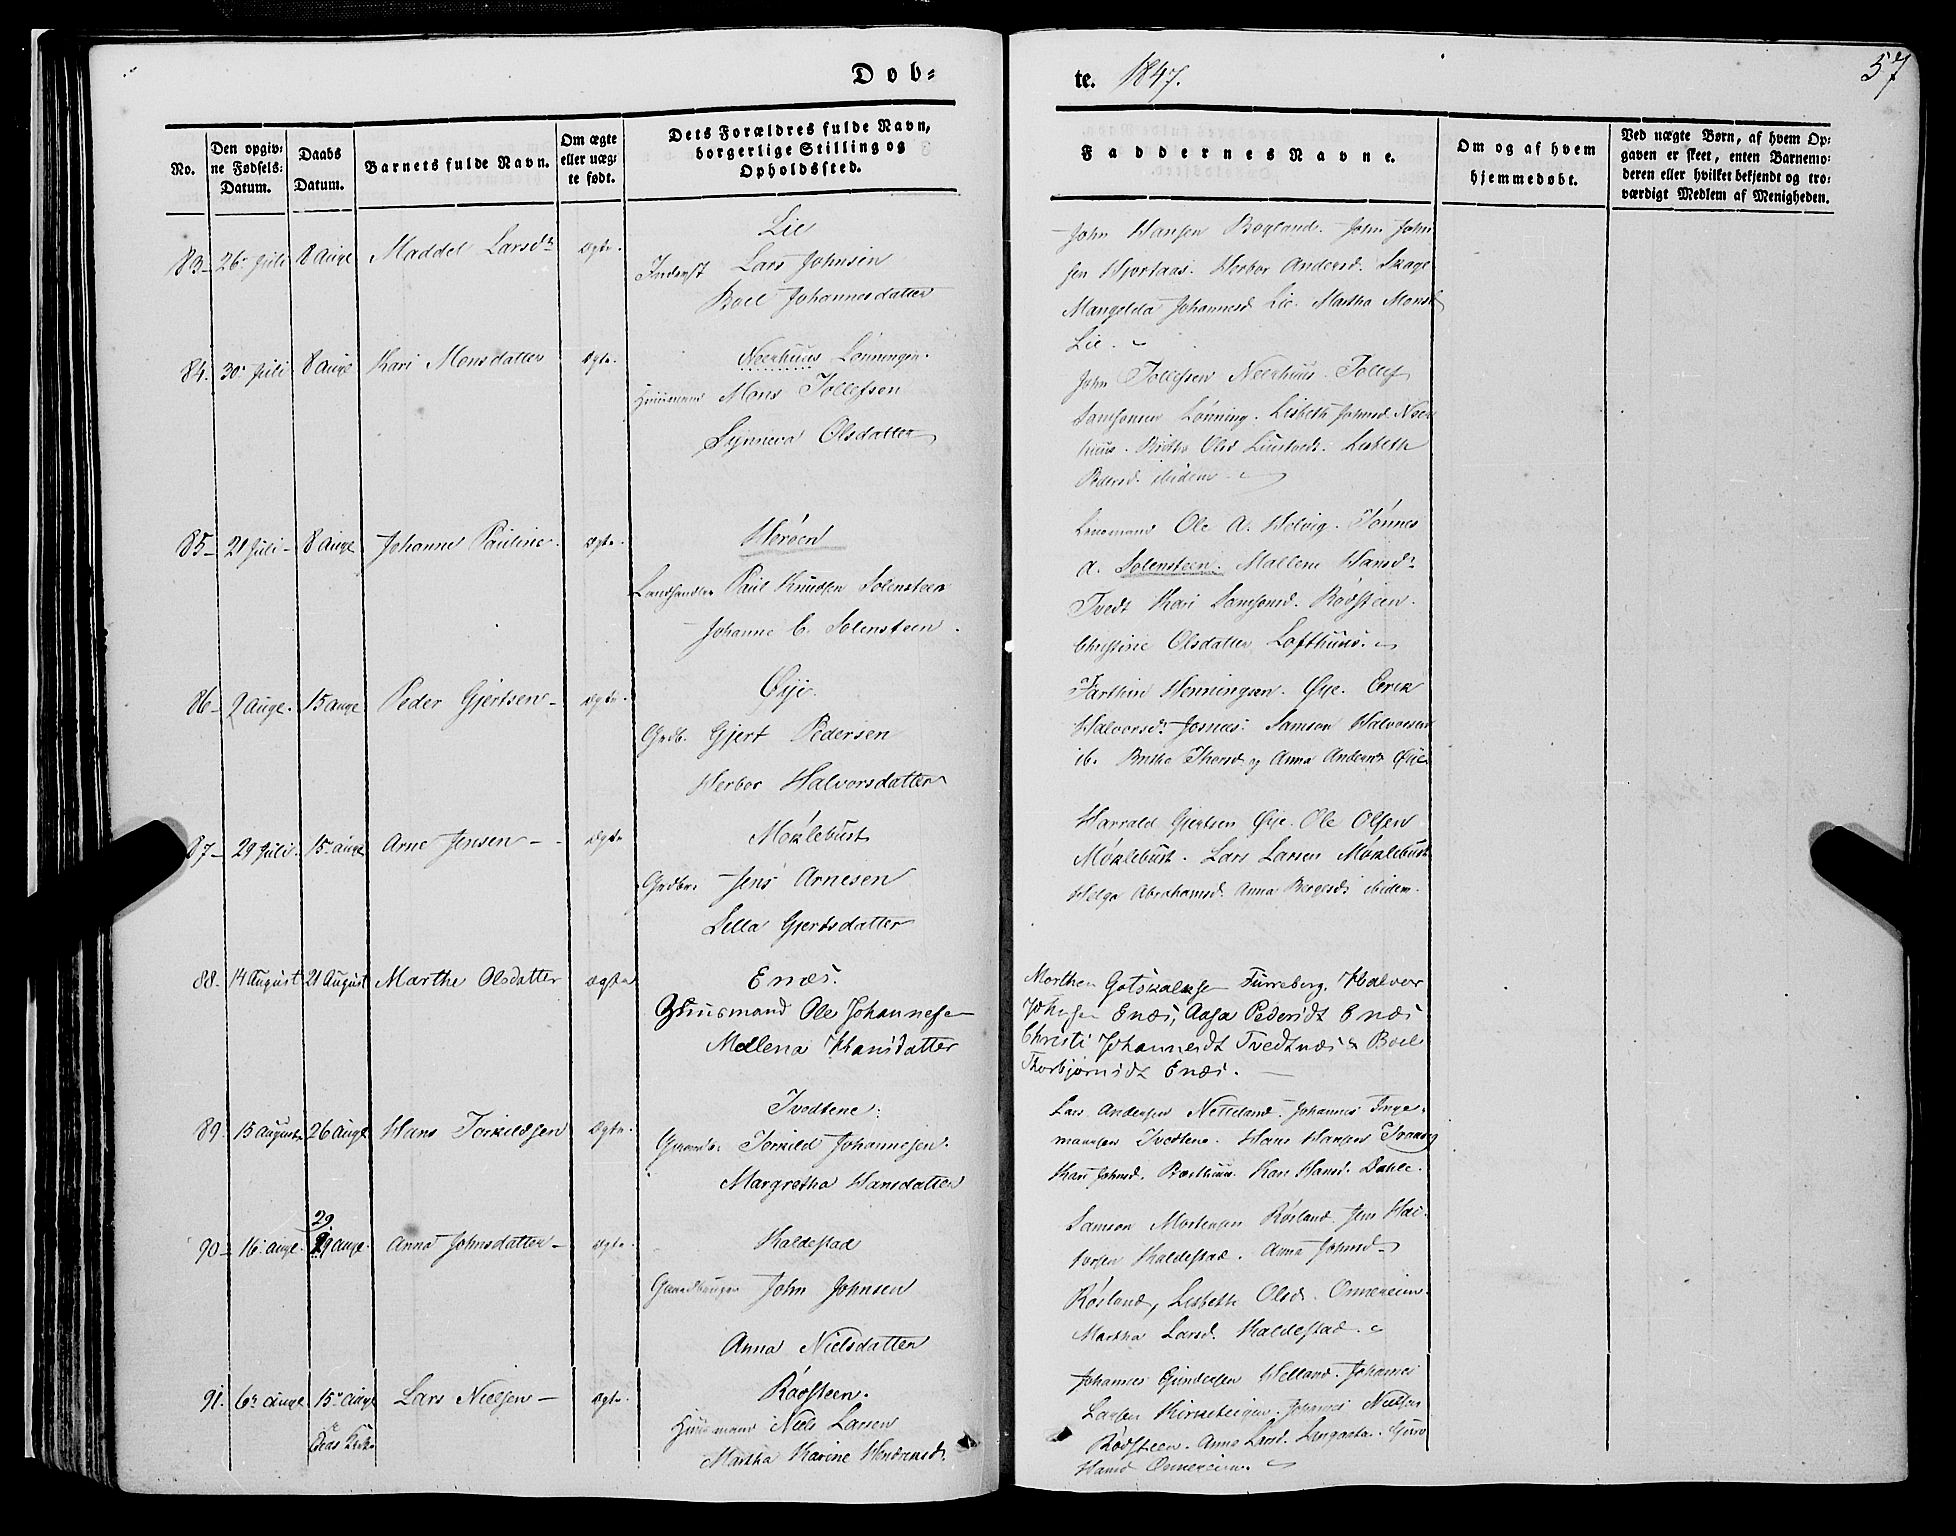 Døb-
te. 1847.
57
No.
Den opgiv-
ne Fødsels-
Datum.
Daabs
Datum.
Barnets fulde Navn.
Om ægte
eller uæg-
te født.
Dets Forældres fulde Navn,
borgerlige Stilling og
Opholdssted.
Faddernes Navne.
Om og af hvem
hjemmedøbt.
Ved uægte Børn, af hvem Op-
gaven er skeet, enten Barnemo-
deren eller hvilket bekjendt og tro-
værdigt Medlem af Menigheden.
Lie
83 26 Juli 8 Aug Maddel Larsdr ægte. Inderst Lars Johnsen
Boel Johannesdatter
John Hansen Bogland. John John
sen Hjortaas. Herbor Andersd. Skage
Mangelda Johannesd Lie. Martha Monsd
Lie.
Neerhuus Lønningen.
84. 30 Juli 8 Aug Kari Monsdatter ægte. Huusmand Mons Tollefsen
Synneva Olsdatter
John Tollefsen Neerhuus. Tollef
Samsonsen Lønning. Lisbeth Johnsd. Neer
huus. Brithe Olsd Lisbeth
Pedersd. ibidem.
Herøen
85 21 Juli 8 Aug Johanne Pauline ægte. Landhandler Paul Knudsen Solensteen
Johanne C. Solensteen.
Lensmand Ole A. Helvig. Tønnes
A. Solensteen. Mallene Hansdr
Tvedt Kari Samsonsd. Rødsteen.
Christine Olsdatter Lofthuus.
Øye.
86 2 Aug. 15 Aug Peder Gjertsen ægte. Grdb. Gjert Pedersen
Herbor Halvorsdatter
Farthin Henningsen. Øye. Erik
Halvorsd. Josnæs. Samson Halvorsen
ib. Brithe Thorsd og Anna Andersd Øye
Møklebust
87 29 Juli. 15 Aug Arne Jensen ægte Grdbr. Jens Arnesen
Lella Gjertsdatter
Harrald Gjertsen Øye. Ole Olsen
Møklebust. Lars Larsen Møklebust
Helga Abrahamsd. Anna Børgesd ibidem.
Enæs.
88. 14 August 21 August Marthe Olsdatter ægte Huusmand Ole Johannesen
Mallena Hansdatter
Morthen Gotskalksen Furreberg. Halvor
Johnsen Enæs, Aasa Pedersdt Enæs
Christi Johannesdt Tvedtnæs & Boel
Thorbjørnsdt Enæs.
Tvedtene.
89. 15 August 26 Aug Hans Torkildsen ægte. Gaardb. Torkild Johannesen.
Margretha Hansdatter
Lars Andersen Netteland. Johannes Inge-
mannsen Tvedtene. Hans Hansen Traneg
Kari Johnsd. Bærthuun. Kari Hansd. Dahle.
29.
90 16 Aug. 29 Aug. Anna Johnsdatter ægte. Haldestad
Gaardbruger John Johnsen
Anna Nielsdatter
Samson Mortensen Røsland. Jens Hal-
vorsen Haldestad. Anna Johnsd
Røsland, Lisbeth Olsd. Omereim.
Martha Larsd. Haldestad.
91. 6 Aug 15 Aug Lars Nielsen ægte. Rødsteen.
Huusmand Niels Larsen
Martha Karine Hendriksd.
Johannes Gundersen Helland. Johannes
Larsen Kirketeigen. Johannes Nielsen
Rødsteen. Anna Larsd. Guro
Hansd Omereim.